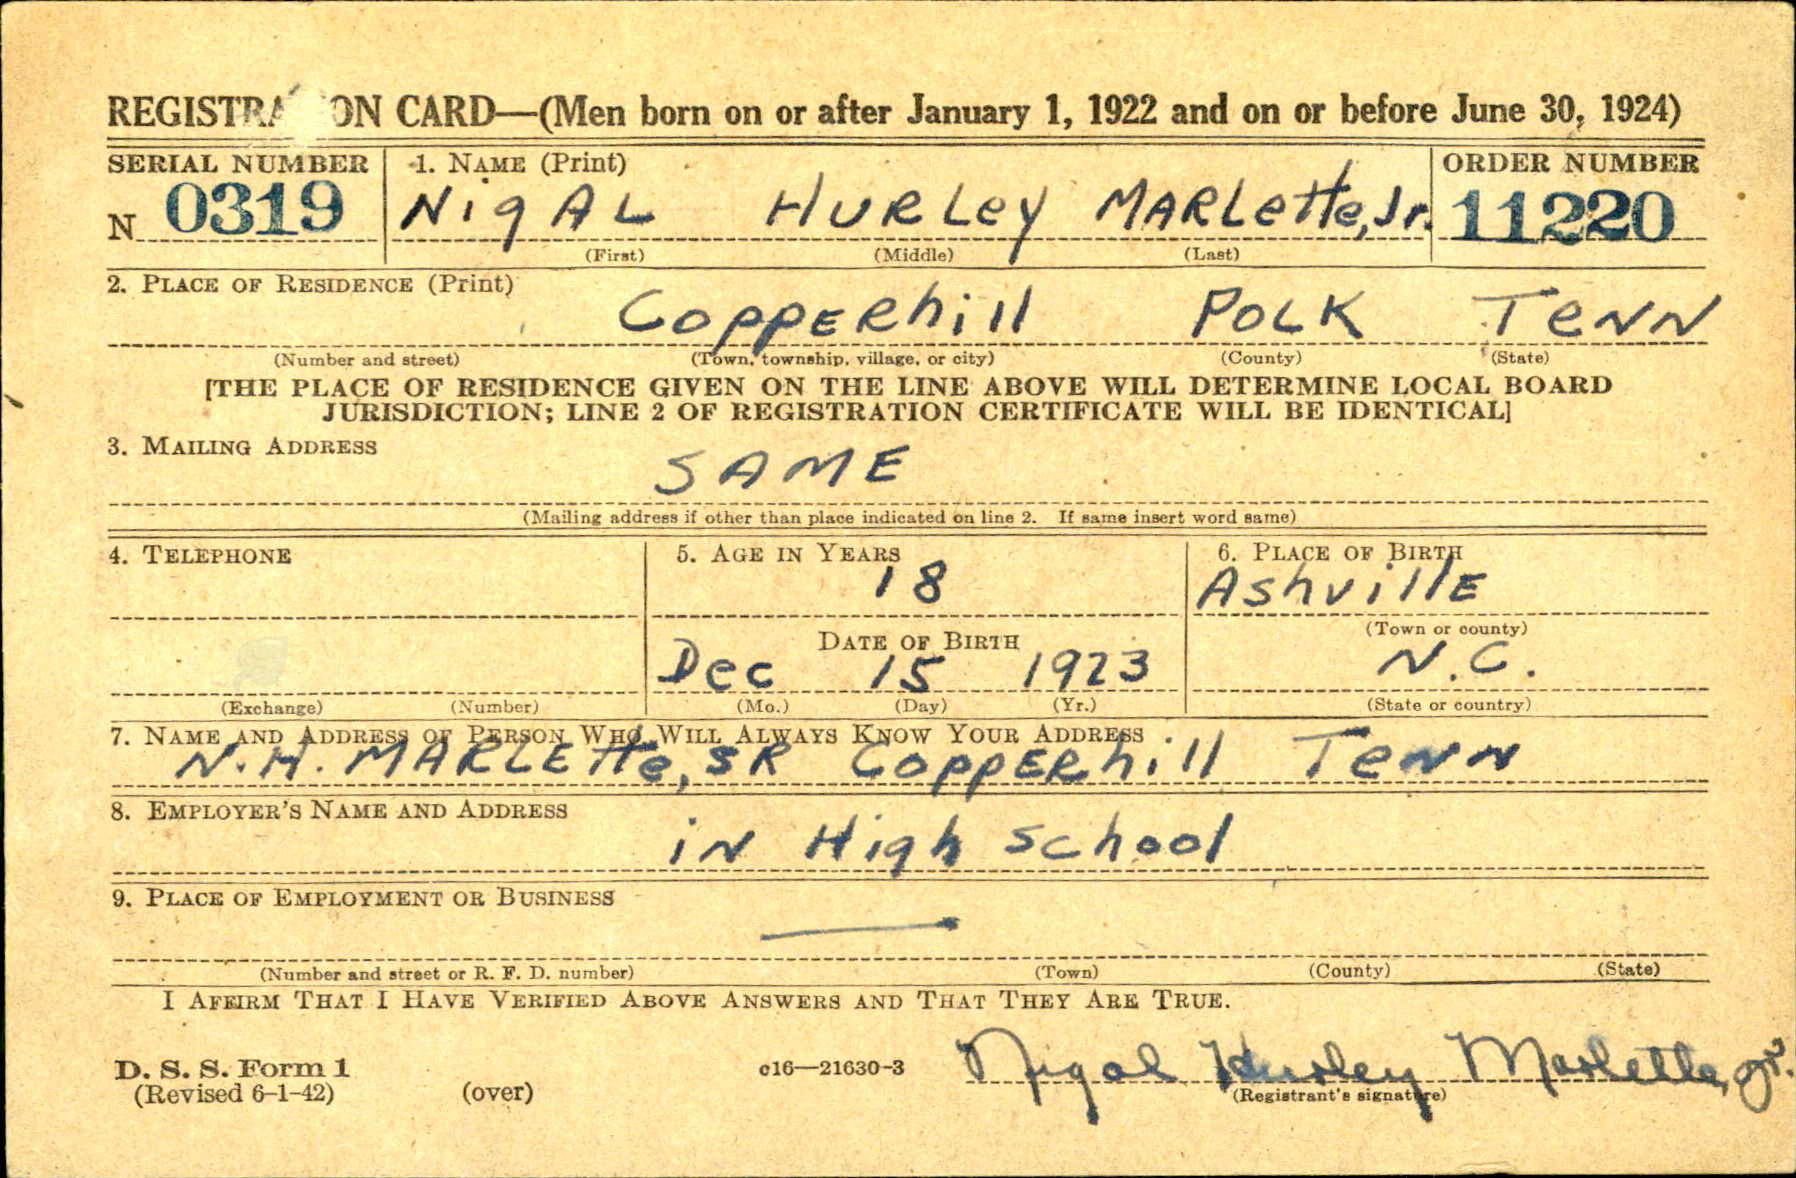 REGISTRATION CARD—(Men born on or after January 1, 1922 and on or before June 30, 1924)
SERIAL NUMBER 1. NAME (Print) ORDER NUMBER
N 0319 NigAL HURLey MARLette, Jr. 11220
(First) (Middle) (Last)
2. PLACE OF RESIDENCE (Print)
COPPERhill POLK TENN
(Number and street) (Town, township, village, or city) (County) (State)
[THE PLACE OF RESIDENCE GIVEN ON THE LINE ABOVE WILL DETERMINE LOCAL BOARD
JURISDICTION; LINE 2 OF REGISTRATION CERTIFICATE WILL BE IDENTICAL]
3. MAILING ADDRESS
SAME
(Mailing address if other than place indicated on line 2. If same insert word same)
4. TELEPHONE 5. AGE IN YEARS 6. PLACE OF BIRTH
18 AShvillE
DATE OF BIRTH (Town or county)
Dec 15 1923 N.C.
(Exchange) (Number) (Mo.) (Day) (Yr.) (State or country)
7. NAME AND ADDRESS OF PERSON WHO WILL ALWAYS KNOW YOUR ADDRESS
N.H. MARLEtte, SR COPPERhill TENN
8. EMPLOYER'S NAME AND ADDRESS
iN High School
9. PLACE OF EMPLOYMENT OR BUSINESS
—
(Number and street or R. F. D. number) (Town) (County) (State)
I AFFIRM THAT I HAVE VERIFIED ABOVE ANSWERS AND THAT THEY ARE TRUE.
D. S. S. Form 1 c16—21630-3 Nigal Hurley Marlette, Jr.
(Revised 6-1-42) (over) (Registrant's signature)